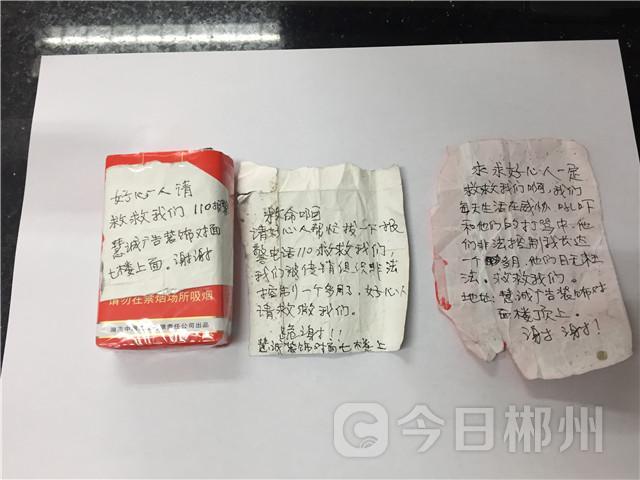 好心人请
救救我们 110报警
慧诚广告装饰对面
七楼上面。谢谢
请勿在禁烟场所吸烟
湖南中烟工业有限责任公司出品
救命啊
请好心人帮忙拔一下报
警电话110救救我们,
我们被传销组织非法
控制一个多月了,好心人
请救救我们。
跪谢!!!
慧诚装饰对面七楼上
求求好心人一定
救救我们啊,我们
每天生活在威胁 吼吓
和他们的打骂中,他
们非法控制我长达
一个多月,他们目无王
法。救救我们。
地址:慧诚广告装饰对
面楼顶上。
谢谢 谢谢!
今日郴州